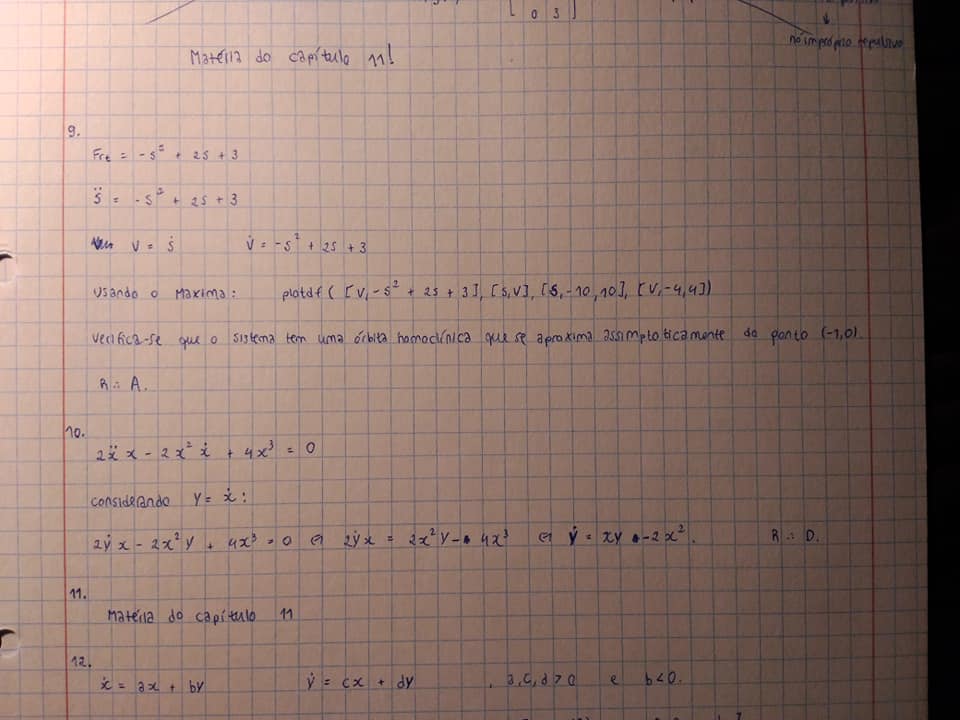 [ 0 3 ]
↓
nó impróprio repulsivo
Matéria do capítulo 11!
9.
Fre = -s² + 2s + 3
s̈ = -s² + 2s + 3
v = ṡ v̇ = -s² + 2s + 3
Usando o Maxima: plotdf ( [v, -s² + 2s + 3], [s,v], [s, -10, 10], [v, -4, 4])
Verifica-se que o sistema tem uma órbita homoclínica que se aproxima assimptoticamente do ponto (-1,0).
R ∴ A.
10.
2ẍ x - 2x² ẋ + 4x³ = 0
considerando y = ẋ :
2ẏx - 2x²y + 4x³ = 0 (=) 2ẏx = 2x²y - 4x³ (=) ẏ = xy - 2x². R ∴ D.
11.
Matéria do capítulo 11
12.
ẋ = ax + by ẏ = cx + dy , a,c,d > 0 e b < 0.